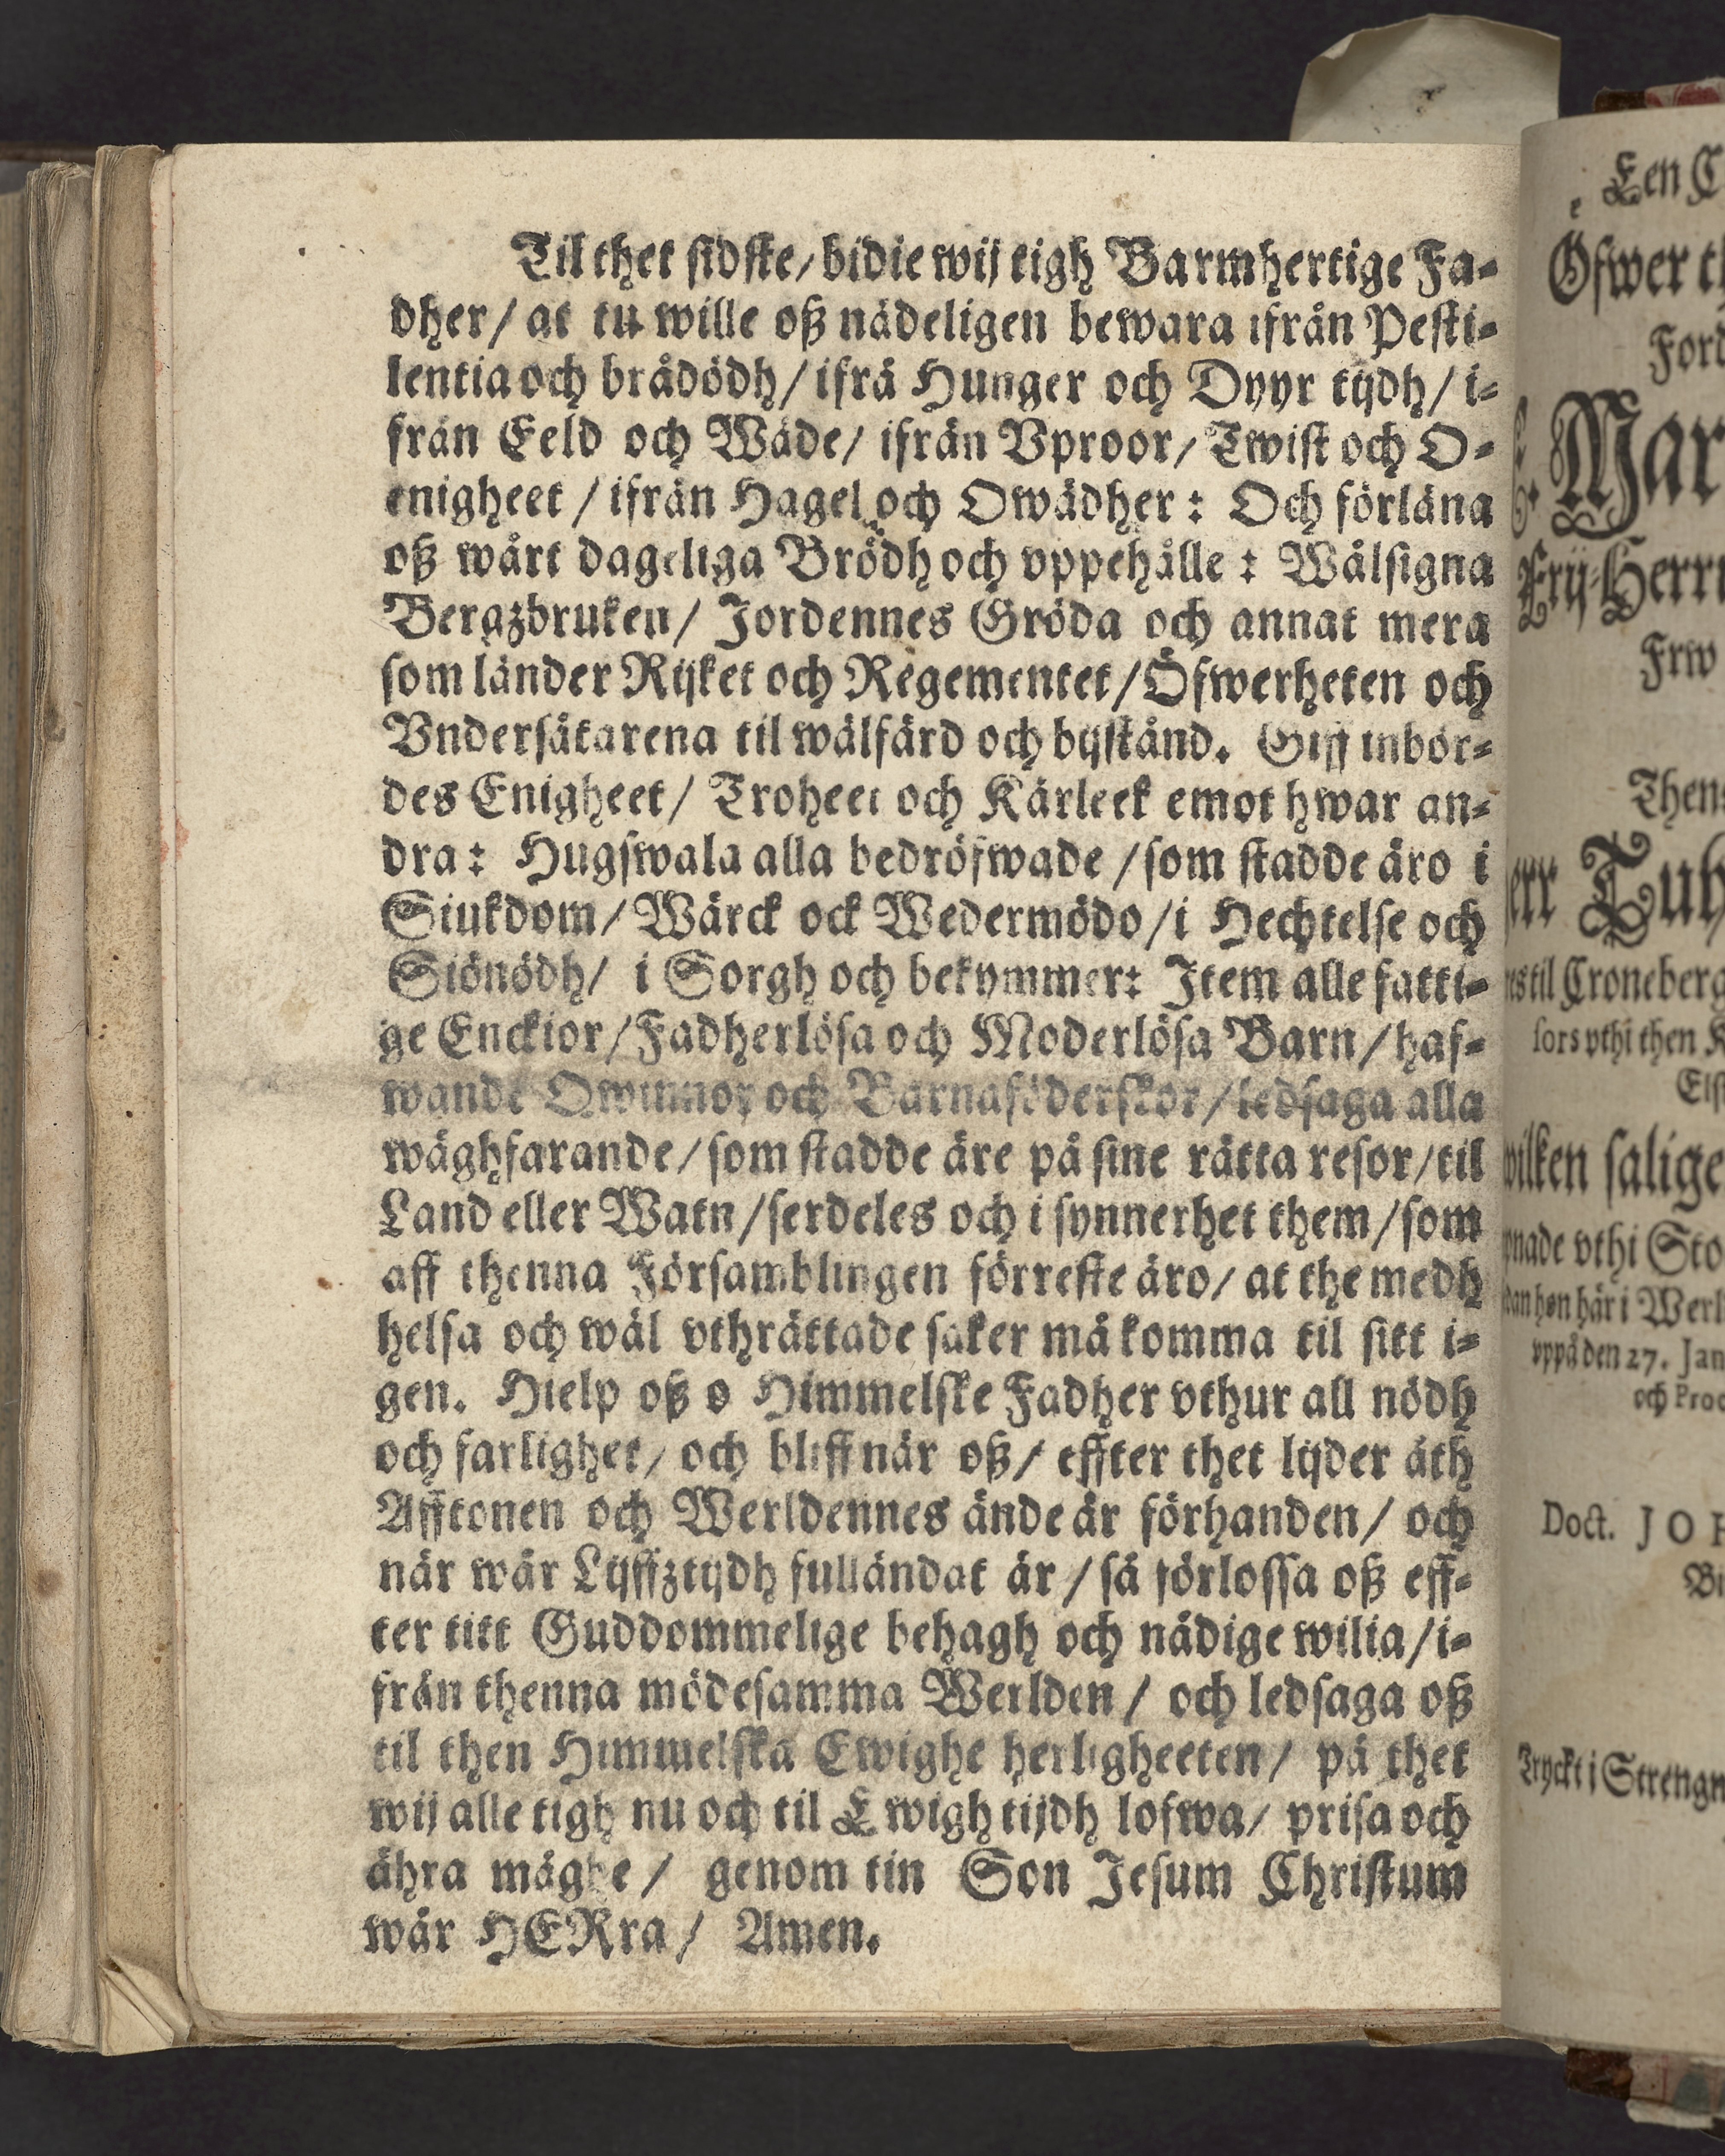 Til thet sidste/ bidie wij tigh Barmhertige Fa-
dher/ at tu wille oß nådeligen bewara ifrån Pesti-
lentia och brådödh/ ifrå Hunger och Dyyr tijdh/ i-
från Eeld och Wåde/ ifrån Vproor/ Twist och O-
enigheet / ifrån Hagel och Owädher: Och förläna
oß wårt dageliga Brödh och vppehälle: Wälsigna
Bergzbruken/ Jordennes Gröda och annat mera
som länder Rijket och Regementet/ Öfwerheten och
Vndersåtarena til wälfärd och bijstånd. Giff inbör-
des Enigheet/ Troheet och Kärleek emot hwar an-
dra: Hugswala alla bedröfwade / som stadde äro i
Siukdom/ Wärck ock Wedermödo/ i Hechtelse och
Siönödh/ i Sorgh och bekymmer: Item alle fatti-
ge Enckior/ Fadherlösa och Moderlösa Barn/ haf-
wande Qwinnor och Barnaföderskor/ ledsaga alla
wäghfarande/ som stadde äre på sine rätta resor/ til
Land eller Watn/ serdeles och i synnerhet them/ som
aff thenna Församblingen förreste äro/ at the medh
helsa och wäl vthrättade saker må komma til sitt i-
gen. Hielp oß o Himmelske Fadher vthur all nödh
och farlighet/ och bliff när oß/ effter thet lijder åth
Afftonen och Werldennes ände är förhanden/ och
när wår Lijffztijdh fulländat är / så förlossa oß eff-
ter titt Guddommelige behagh och nådige wilia/ i-
från thenna mödesamma Werlden / och ledsaga oß
til then Himmelska Ewighe herligheeten/ på thet
wij alle tigh nu och til Ewigh tijdh lofwa/ prisa och
ähra måghe / genom tin Son Jesum Christum
wår HERra/ Amen.
Een
Öfwer
Mar
Frw
til Croneberg
vthi then
salige
vthi
här i
vppå den 27. Jan
och
Doct. JOH
Tryckt i Strengn